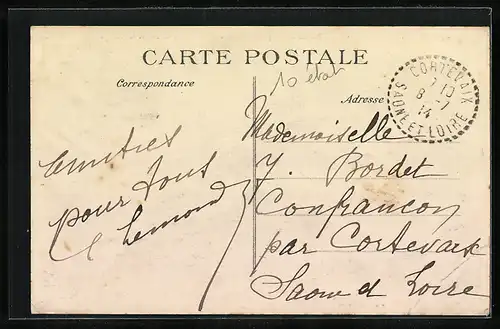 CARTE POSTALE
Correspondance
Adresse
CORTEVAIX
7 10
8 -7
14
SAONE ET LOIRE
Amitiés
pour tous
Mademoiselle
J. Bordet
Confrancon
par Cortevaix
Saone et Loire